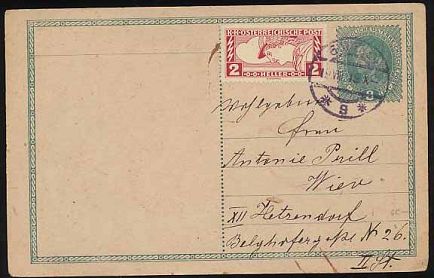 K·K·ÖSTERREICHISCHE·POST
2 HELLER 2
8
* 9 *
Wohlgeboren
Frau
Antonie Prill
Wien
XII Hetzendorf
Belghofergasse N 26.
II. St.